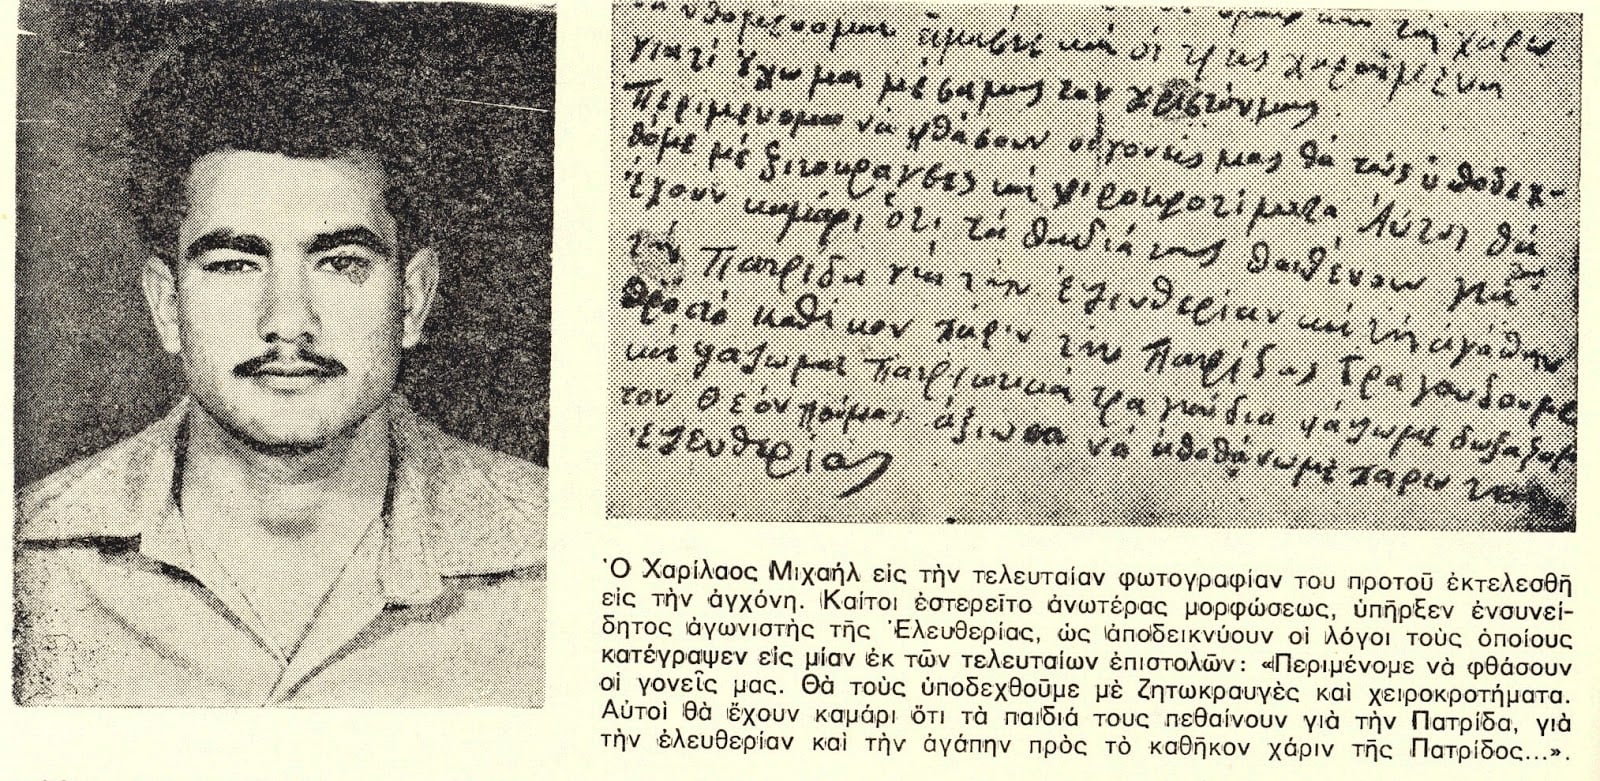 γιατί έχωμαι μέσα μας τον χριστόν μας
Περιμένομαι νά φθάσουν οι γονείς μας θά τούς υποδεχ-
θόμε μέ ζιτοκραγσές καί χιροκροτίματα Αύτοι θά
έχουν καμάρι ότι τά παιδιά τους παιθένουν γιά
τήν Πατρίδα γιά τήν έλευθερίαν καί τήν αγάπην
πρός τό καθίκον χάριν τής Πατρίδας τραγουδουμε
καί ψάλωμαι Πατριωτικά τραγούδια ψάλωμε
τον Θεόν πού μας άξιωσε νά αποθάνωμε χάριν
Ἐλευθερίας
Ὁ Χαρίλαος Μιχαήλ εἰς τὴν τελευταίαν φωτογραφίαν του προτοῦ ἐκτελεσθῆ
εἰς τὴν ἀγχόνη. Καίτοι ἐστερεῖτο ἀνωτέρας μορφώσεως, ὑπῆρξεν ἐνσυνεί-
δητος ἀγωνιστὴς τῆς Ἐλευθερίας, ὡς ἀποδεικνύουν οἱ λόγοι τοὺς ὁποίους
κατέγραψεν εἰς μίαν ἐκ τῶν τελευταίων ἐπιστολῶν: «Περιμένομε νὰ φθάσουν
οἱ γονεῖς μας. Θὰ τοὺς ὑποδεχθοῦμε μὲ ζητωκραυγὲς καὶ χειροκροτήματα.
Αὐτοὶ θὰ ἔχουν καμάρι ὅτι τὰ παιδιά τους πεθαίνουν γιὰ τὴν Πατρίδα, γιὰ
τὴν ἐλευθερίαν καὶ τὴν ἀγάπην πρὸς τὸ καθῆκον χάριν τῆς Πατρίδος...».